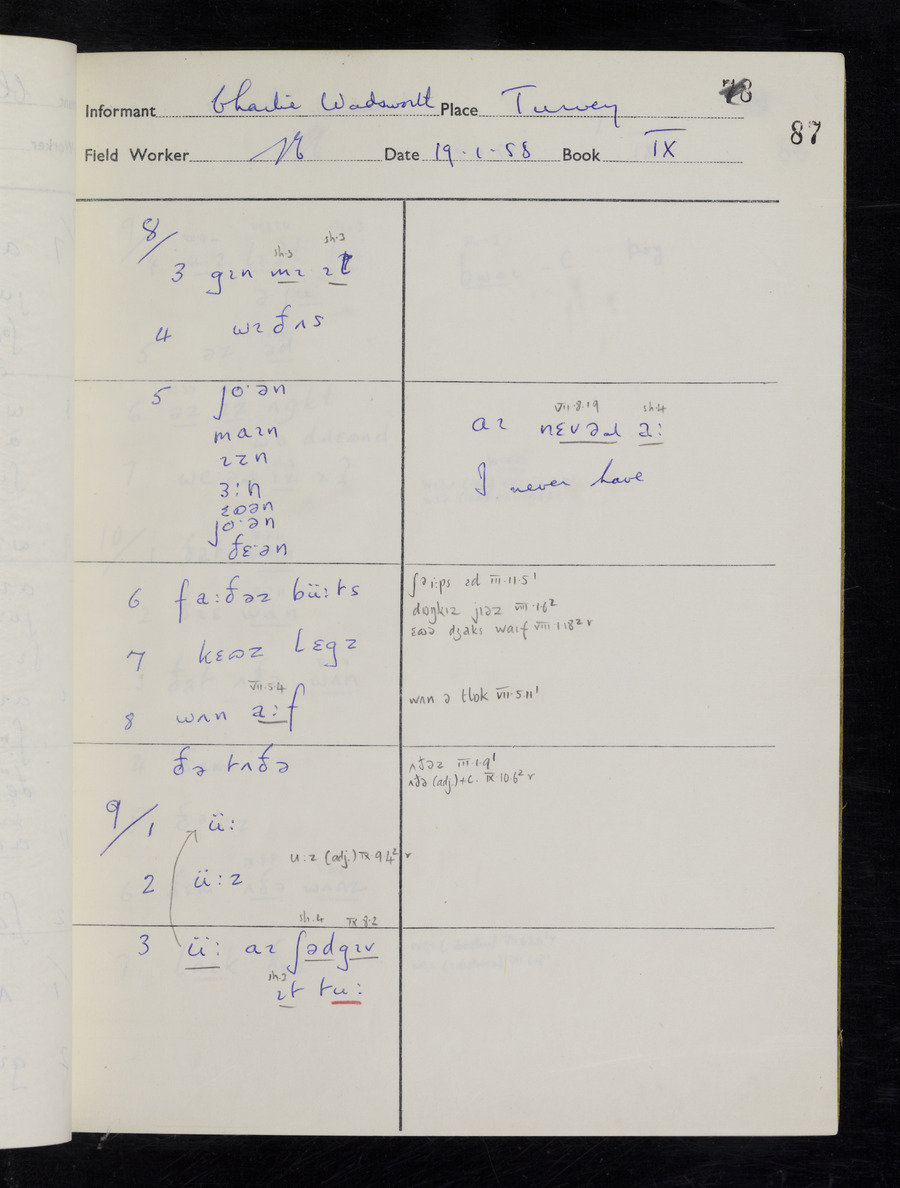 78
87
Informant Charlie Wadsworth Place Turvey
Field Worker Date 19.1.58 Book IX
8/
sh.3 sh.3
3 gɪn mɪ ɪt
4 wɪ ðʌs
5 ʃo·ən
maɪn
ɪzn
ɜ:n
ɛʊən
ʃo·ən
ðɛ·ən
VII.8.19 sh.4
aɪ nɛvəɹ a:
I never have
6 fa:ðəz bü:ts
ʃəi:ps ɪd III.11.5¹
dɒŋkɪz jɪəz VIII.1.6²
ɛʊə dʒaks waɪf VIII.1.18² r
7 kɛʊz lɛgz
VII.5.4
8 wʌn a:f
wʌn ə tlɒk VII.5.11¹
ðə tʌðə
ʌðəz III.1.9¹
ʌðə (adj.)+c. IX 10.6² r
9/1 ü:
u:z (adj.) IX 9 4² r
2 ü:z
sh.4 IX 8.2
3 ü: aɪ ʃədgɪv
sh.3
ɪt tu: